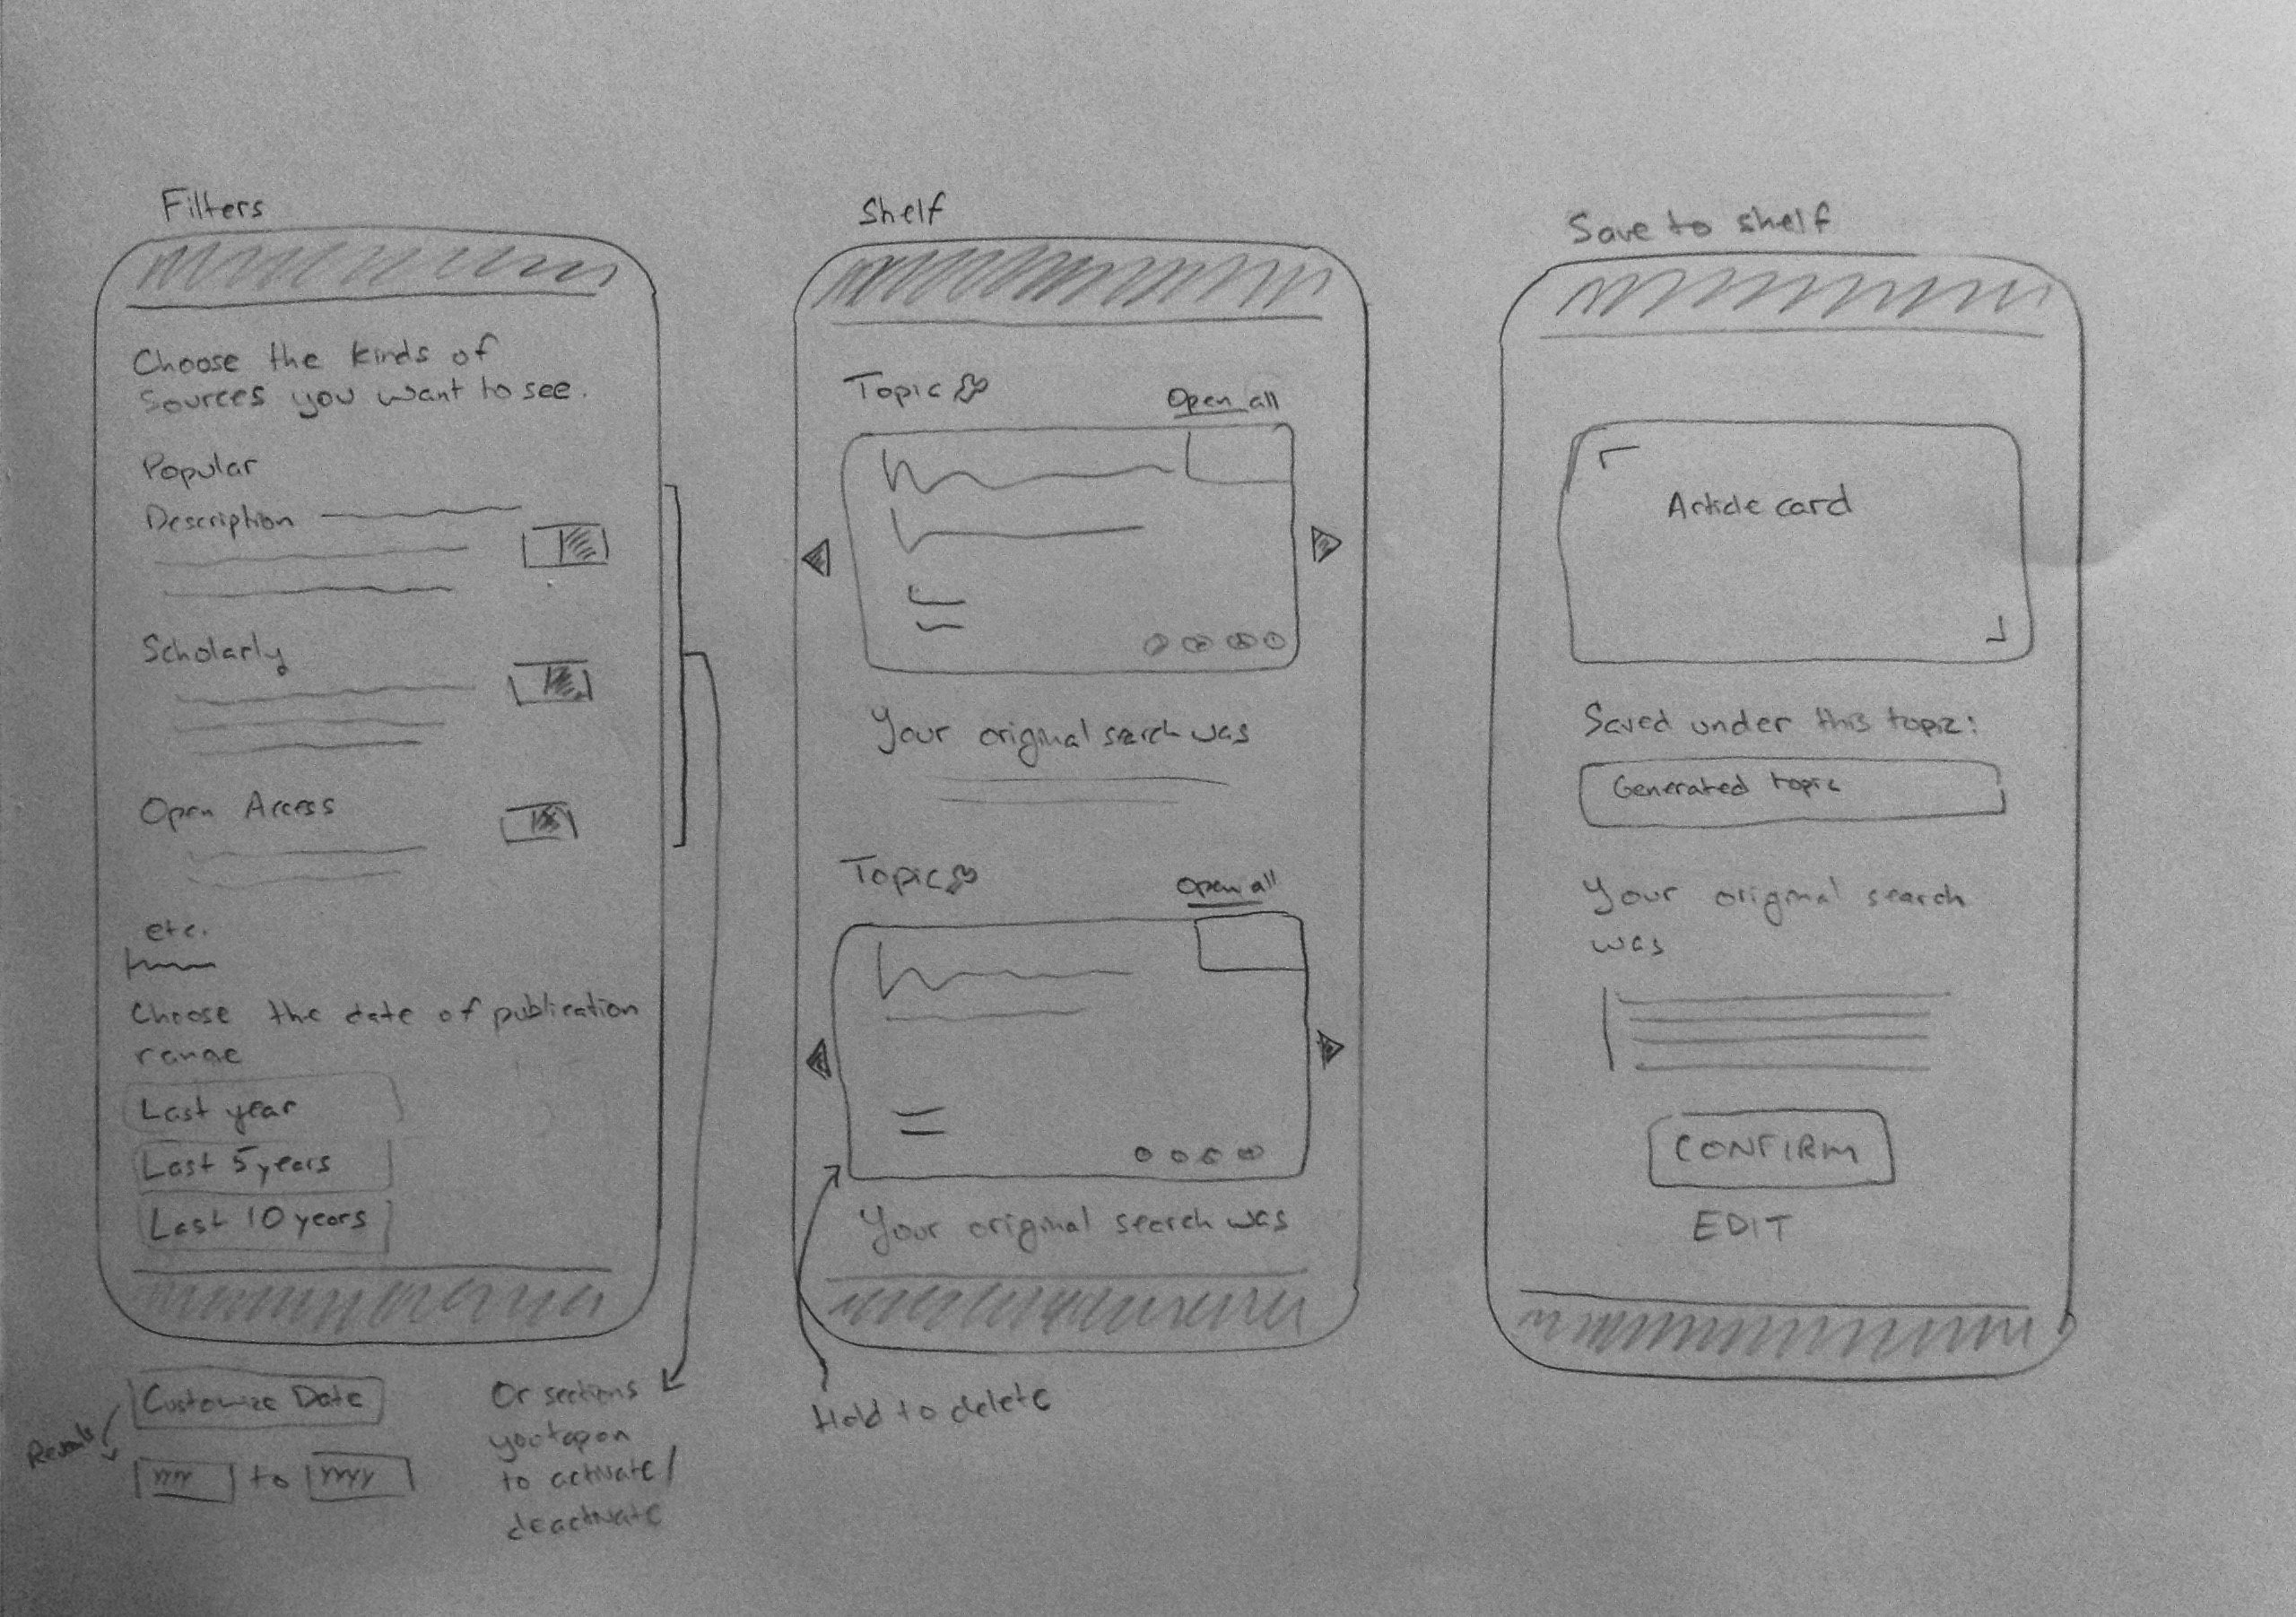 Filters
Choose the kinds of
Sources you want to see.
Popular
Description
Scholarly
Open Access
etc.
Choose the date of publication
range
Last year
Last 5 years
Last 10 years
Customize Date
Reveals
YYYY to YYYY
Or sections
you tap on
to activate/
deactivate
Shelf
Topic
Open all
Your original search was
Topic
Open all
Your original search was
Hold to delete
Save to shelf
Article card
Saved under this topic:
Generated topic
Your original search
was
CONFIRM
EDIT